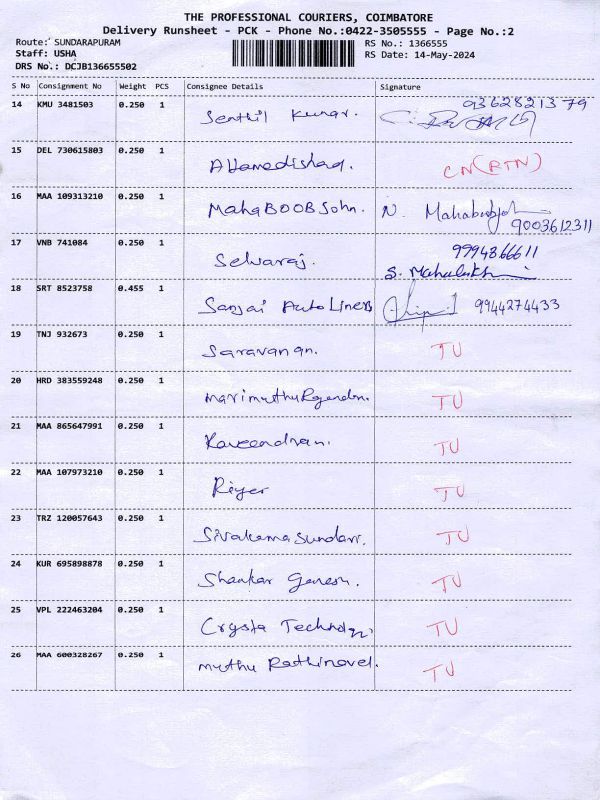 THE PROFESSIONAL COURIERS, COIMBATORE
Delivery Runsheet - PCK - Phone No.:0422-3505555 - Page No.:2
Route: SUNDARAPURAM RS No.: 1366555
Staff: USHA RS Date: 14-May-2024
DRS No.: DCJB136655502
S No Consignment No Weight PCS Consignee Details Signature
14 KMU 3481503 0.250 1 Senthil Kumar. 9362821379
15 DEL 730615803 0.250 1 CN(RTN)
16 MAA 109313210 0.250 1 MahaBOOBJohn. N. Mahaboobjohn
9003612311
17 VNB 741084 0.250 1 Selvaraj. 9994866611
S. Mahalakshmi
18 SRT 8523758 0.455 1 Sanjai AutoLiners 9944274433
19 TNJ 932673 0.250 1 Saravanan. TU
20 HRD 383559248 0.250 1 MarimuthuRajendn. TU
21 MAA 865647991 0.250 1 Raveendran. TU
22 MAA 107973210 0.250 1 TU
23 TRZ 120057643 0.250 1 Sivakamasundari. TU
24 KUR 695898878 0.250 1 Shankar Ganesh. TU
25 VPL 222463204 0.250 1 Crysta TU
26 MAA 600328267 0.250 1 Muthu Rathinavel. TU